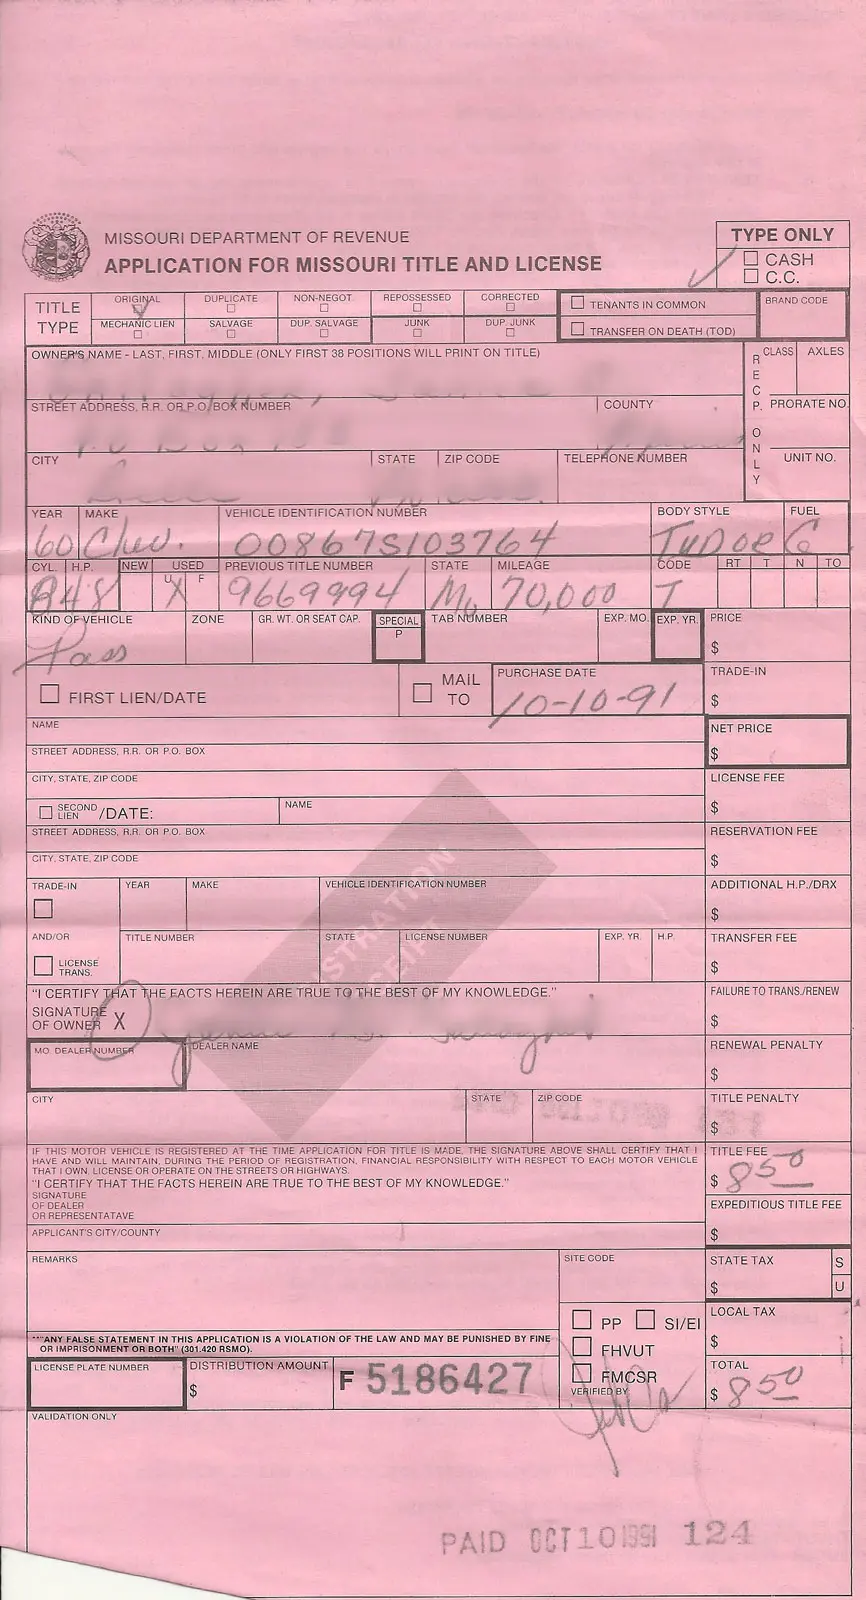 MISSOURI DEPARTMENT OF REVENUE
APPLICATION FOR MISSOURI TITLE AND LICENSE
TYPE ONLY
CASH
C.C.
TITLE TYPE
ORIGINAL DUPLICATE NON-NEGOT. REPOSSESSED CORRECTED
MECHANIC LIEN SALVAGE DUP. SALVAGE JUNK DUP. JUNK
TENANTS IN COMMON
TRANSFER ON DEATH (TOD)
BRAND CODE
OWNER'S NAME - LAST, FIRST, MIDDLE (ONLY FIRST 38 POSITIONS WILL PRINT ON TITLE)
RECP. ONLY
CLASS AXLES
STREET ADDRESS, R.R. OR P.O. BOX NUMBER COUNTY PRORATE NO.
CITY STATE ZIP CODE TELEPHONE NUMBER UNIT NO.
YEAR MAKE VEHICLE IDENTIFICATION NUMBER BODY STYLE FUEL
60 Chev. 00867S103764 TUDOR G
CYL. H.P. NEW USED PREVIOUS TITLE NUMBER STATE MILEAGE CODE RT T N TO
U F
848 X 9669994 Mo 70,000 T
KIND OF VEHICLE ZONE GR. WT. OR SEAT CAP. SPECIAL TAB NUMBER EXP. MO. EXP. YR. PRICE
P
Pass
$
FIRST LIEN/DATE MAIL TO PURCHASE DATE TRADE-IN
10-10-91
$
NAME NET PRICE
STREET ADDRESS, R.R. OR P.O. BOX
$
CITY, STATE, ZIP CODE LICENSE FEE
SECOND LIEN /DATE: NAME
$
STREET ADDRESS, R.R. OR P.O. BOX RESERVATION FEE
CITY, STATE, ZIP CODE
$
TRADE-IN YEAR MAKE VEHICLE IDENTIFICATION NUMBER ADDITIONAL H.P./DRX
$
AND/OR TITLE NUMBER STATE LICENSE NUMBER EXP. YR. H.P. TRANSFER FEE
LICENSE TRANS.
$
"I CERTIFY THAT THE FACTS HEREIN ARE TRUE TO THE BEST OF MY KNOWLEDGE." FAILURE TO TRANS./RENEW
SIGNATURE OF OWNER X
$
MO. DEALER NUMBER DEALER NAME RENEWAL PENALTY
$
CITY STATE ZIP CODE TITLE PENALTY
$
IF THIS MOTOR VEHICLE IS REGISTERED AT THE TIME APPLICATION FOR TITLE IS MADE, THE SIGNATURE ABOVE SHALL CERTIFY THAT I
HAVE AND WILL MAINTAIN, DURING THE PERIOD OF REGISTRATION, FINANCIAL RESPONSIBILITY WITH RESPECT TO EACH MOTOR VEHICLE
THAT I OWN, LICENSE OR OPERATE ON THE STREETS OR HIGHWAYS.
"I CERTIFY THAT THE FACTS HEREIN ARE TRUE TO THE BEST OF MY KNOWLEDGE."
TITLE FEE
$ 8 50
SIGNATURE
OF DEALER
OR REPRESENTATAVE
EXPEDITIOUS TITLE FEE
$
APPLICANT'S CITY/COUNTY
REMARKS SITE CODE STATE TAX S
$ U
PP SI/EI LOCAL TAX
FHVUT
$
FMCSR
VERIFIED BY
"ANY FALSE STATEMENT IN THIS APPLICATION IS A VIOLATION OF THE LAW AND MAY BE PUNISHED BY FINE
OR IMPRISONMENT OR BOTH" (301.420 RSMO).
LICENSE PLATE NUMBER DISTRIBUTION AMOUNT
$
F 5186427
TOTAL
$ 8 50
VALIDATION ONLY
PAID OCT 10 1991 124